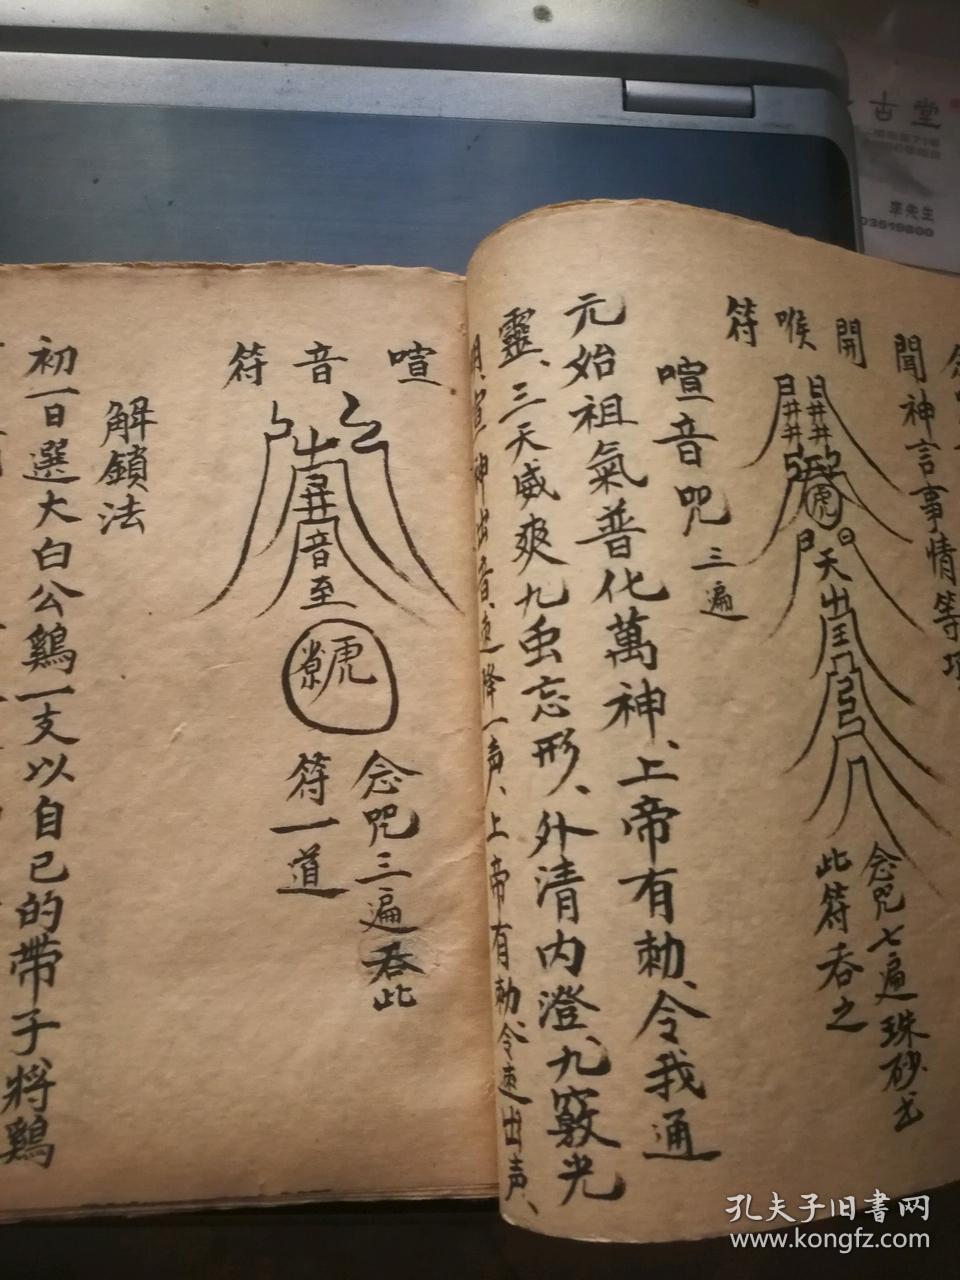 聞神言事情等項
開喉符
念咒七遍珠砂書
此符吞之
喧音咒 三遍
元始祖氣普化萬神、上帝有勅、令我通
靈、三天威爽九虫忘形、外清内澄、九竅光
明、喧神出音、速降一声、上帝有勅、令速出声、
喧音符
念咒三遍吞此
符一道
解鎖法
初一日選大白公鷄一支以自已的帶子將鷄
古堂
李先生
孔夫子旧书网
www.kongfz.com